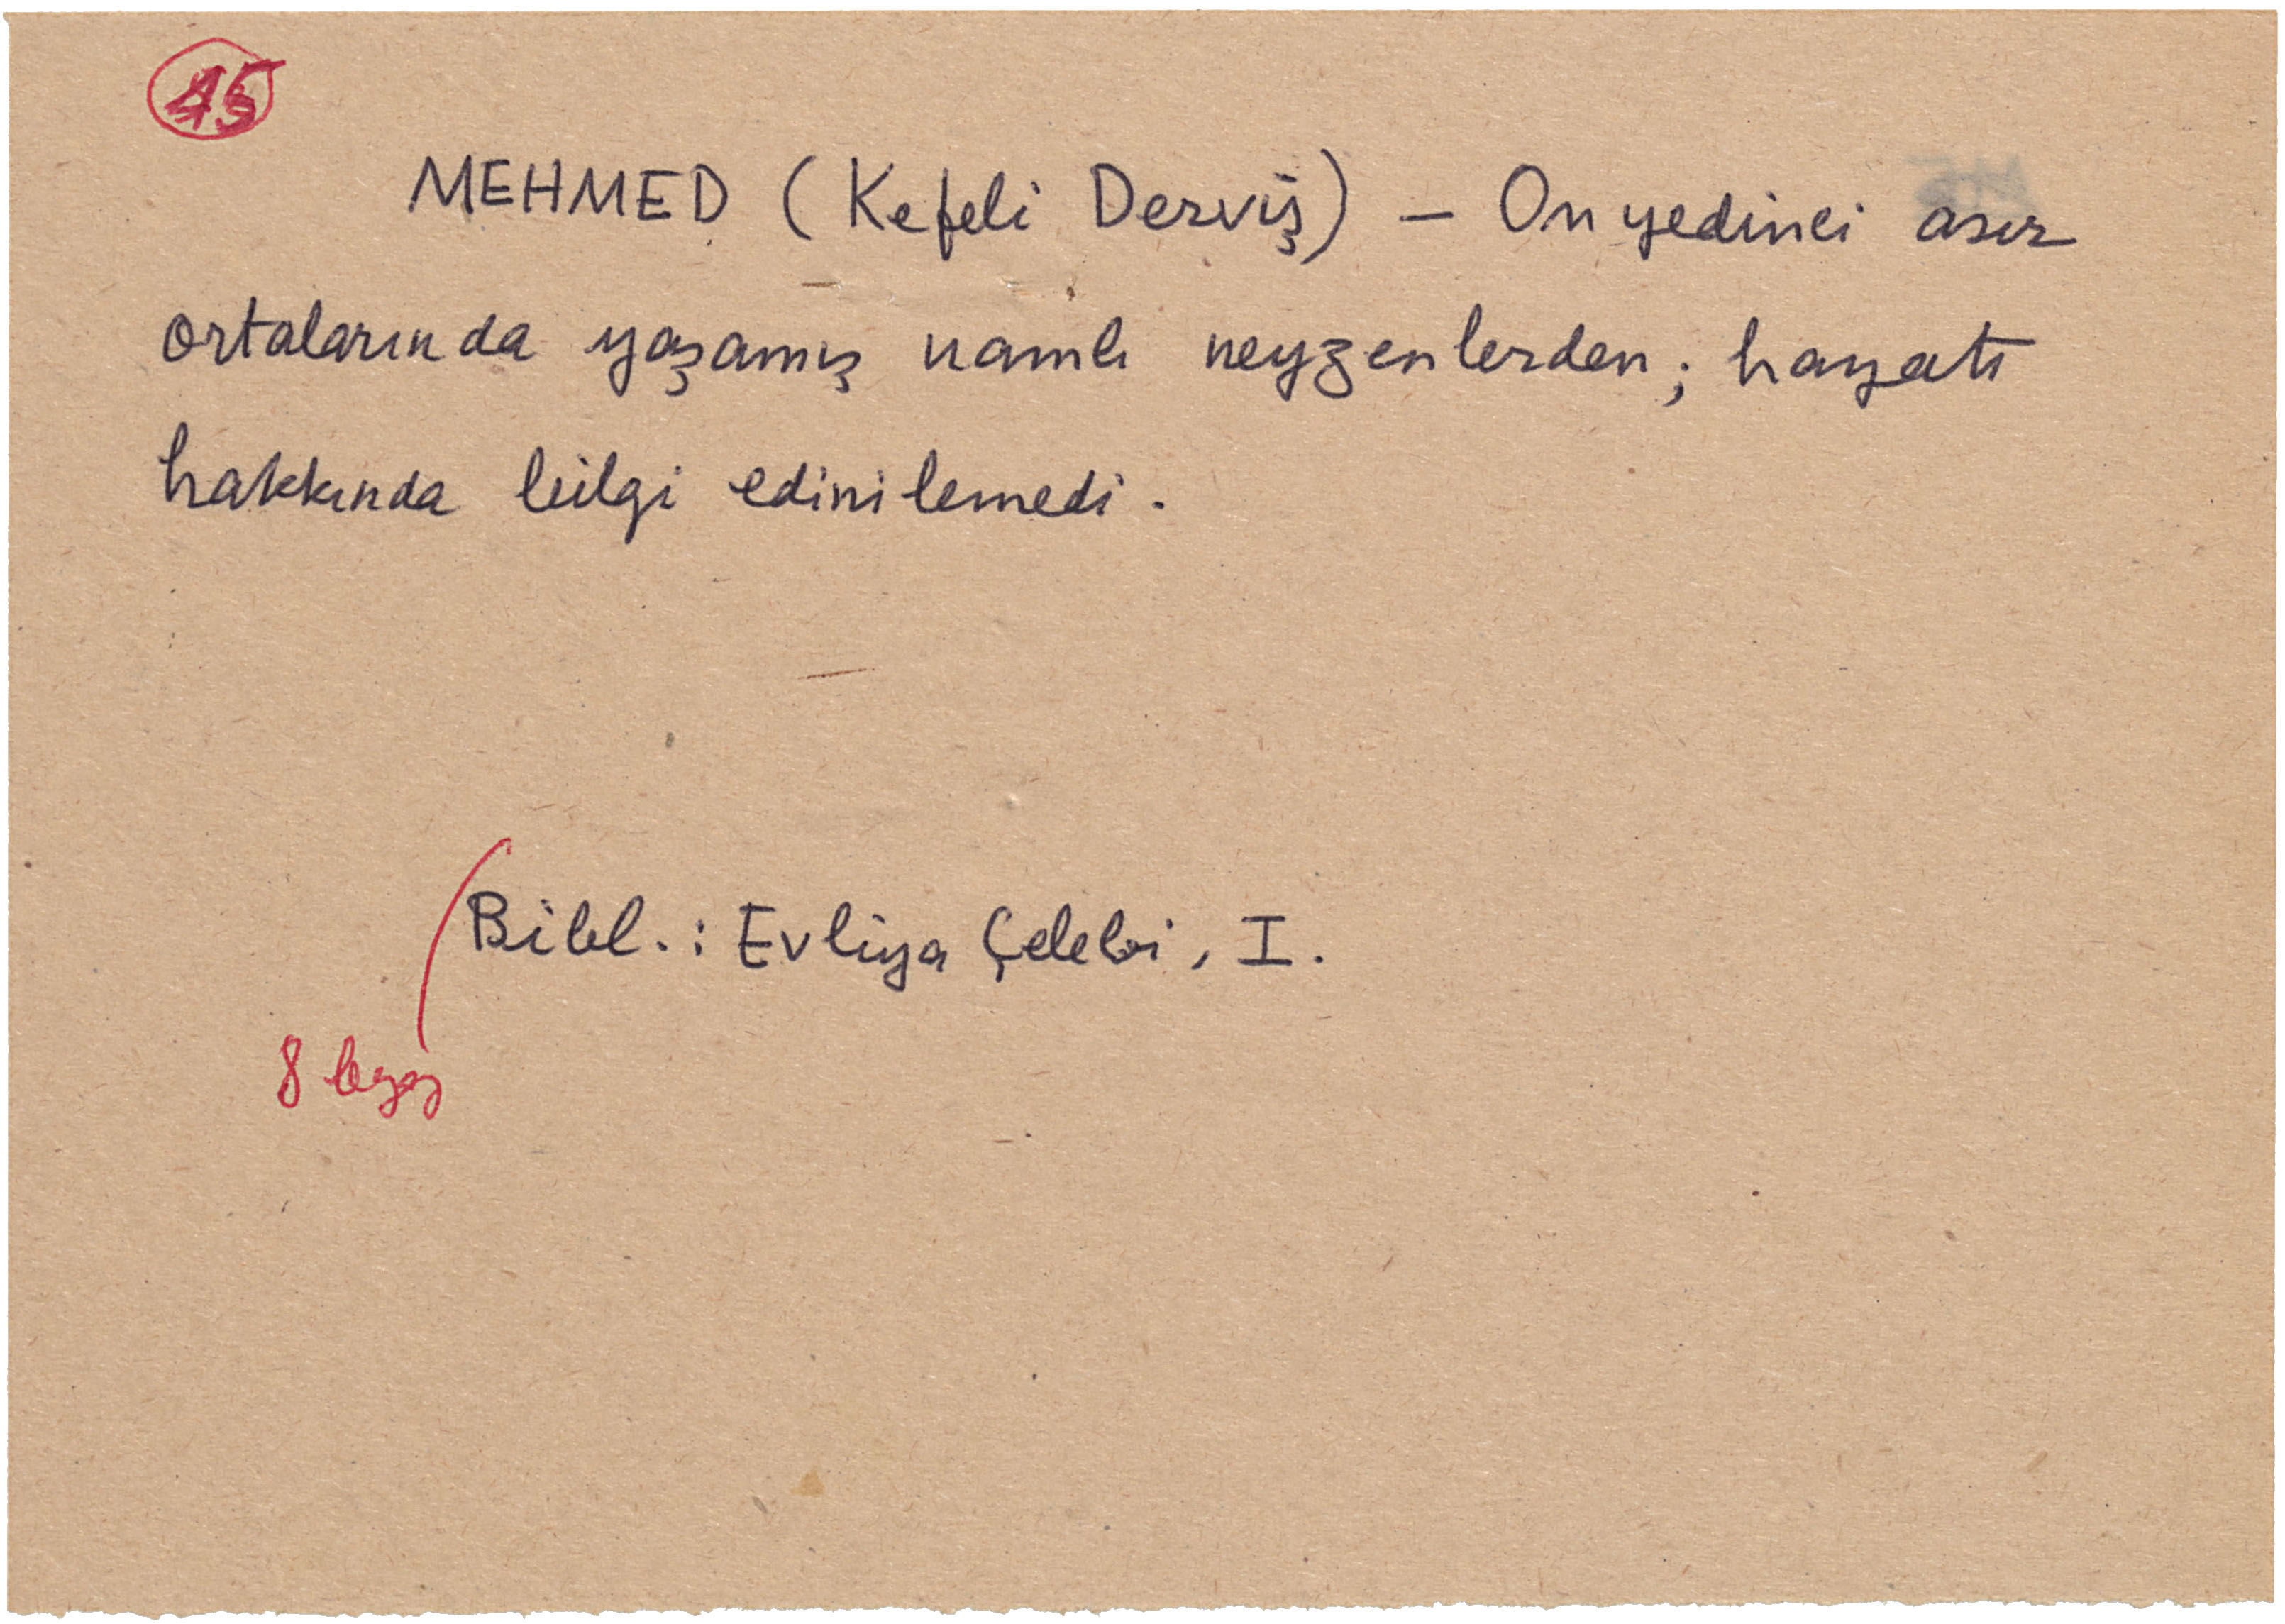 45
MEHMED (Kefeli Derviş) – Onyedinci asır
ortalarında yaşamış namlı neyzenlerden; hayatı
hakkında bilgi edinilemedi.
Bibl.: Evliya Çelebi, I.
8 beyaz